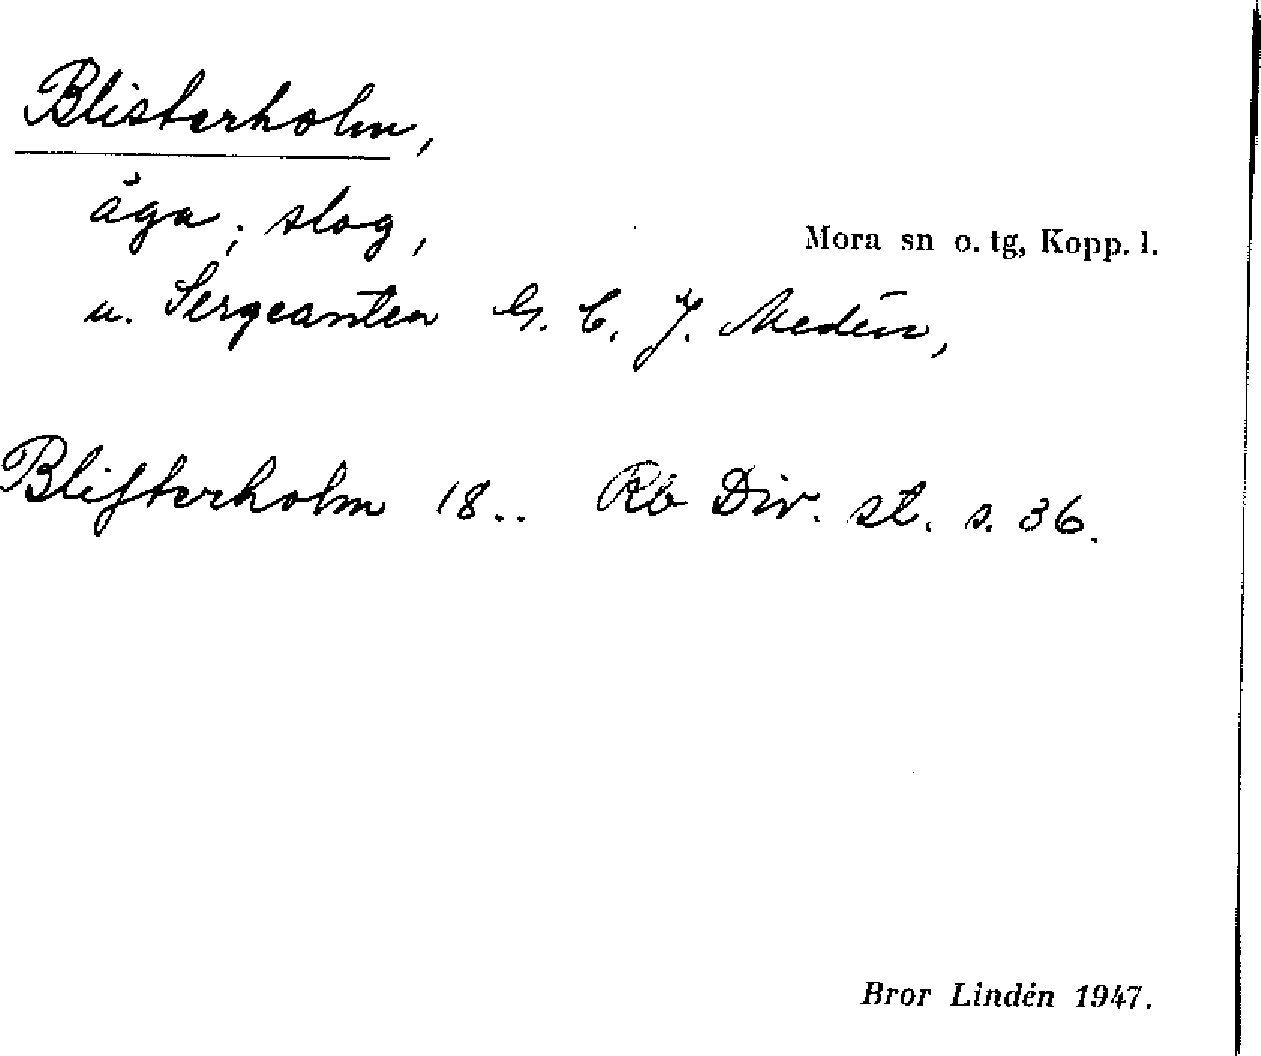 Blisterholm,
äga; slog,
Mora sn o. tg, Kopp. l.
u. Sergeanten G. C. J. Medén,
Bliſterholm 18.. Rb Div. st. s. 36.
Bror Lindén 1947.